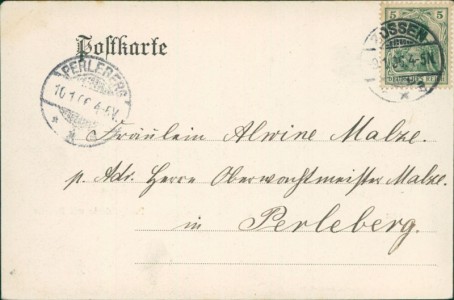 Postkarte
5 5
ZOSSEN
PERLEBERG
10.1.06. 4-5V.
Fräulein Alwine Malze.
p. Adr. Herrn Oberwachtmeister Malze.
in Perleberg.